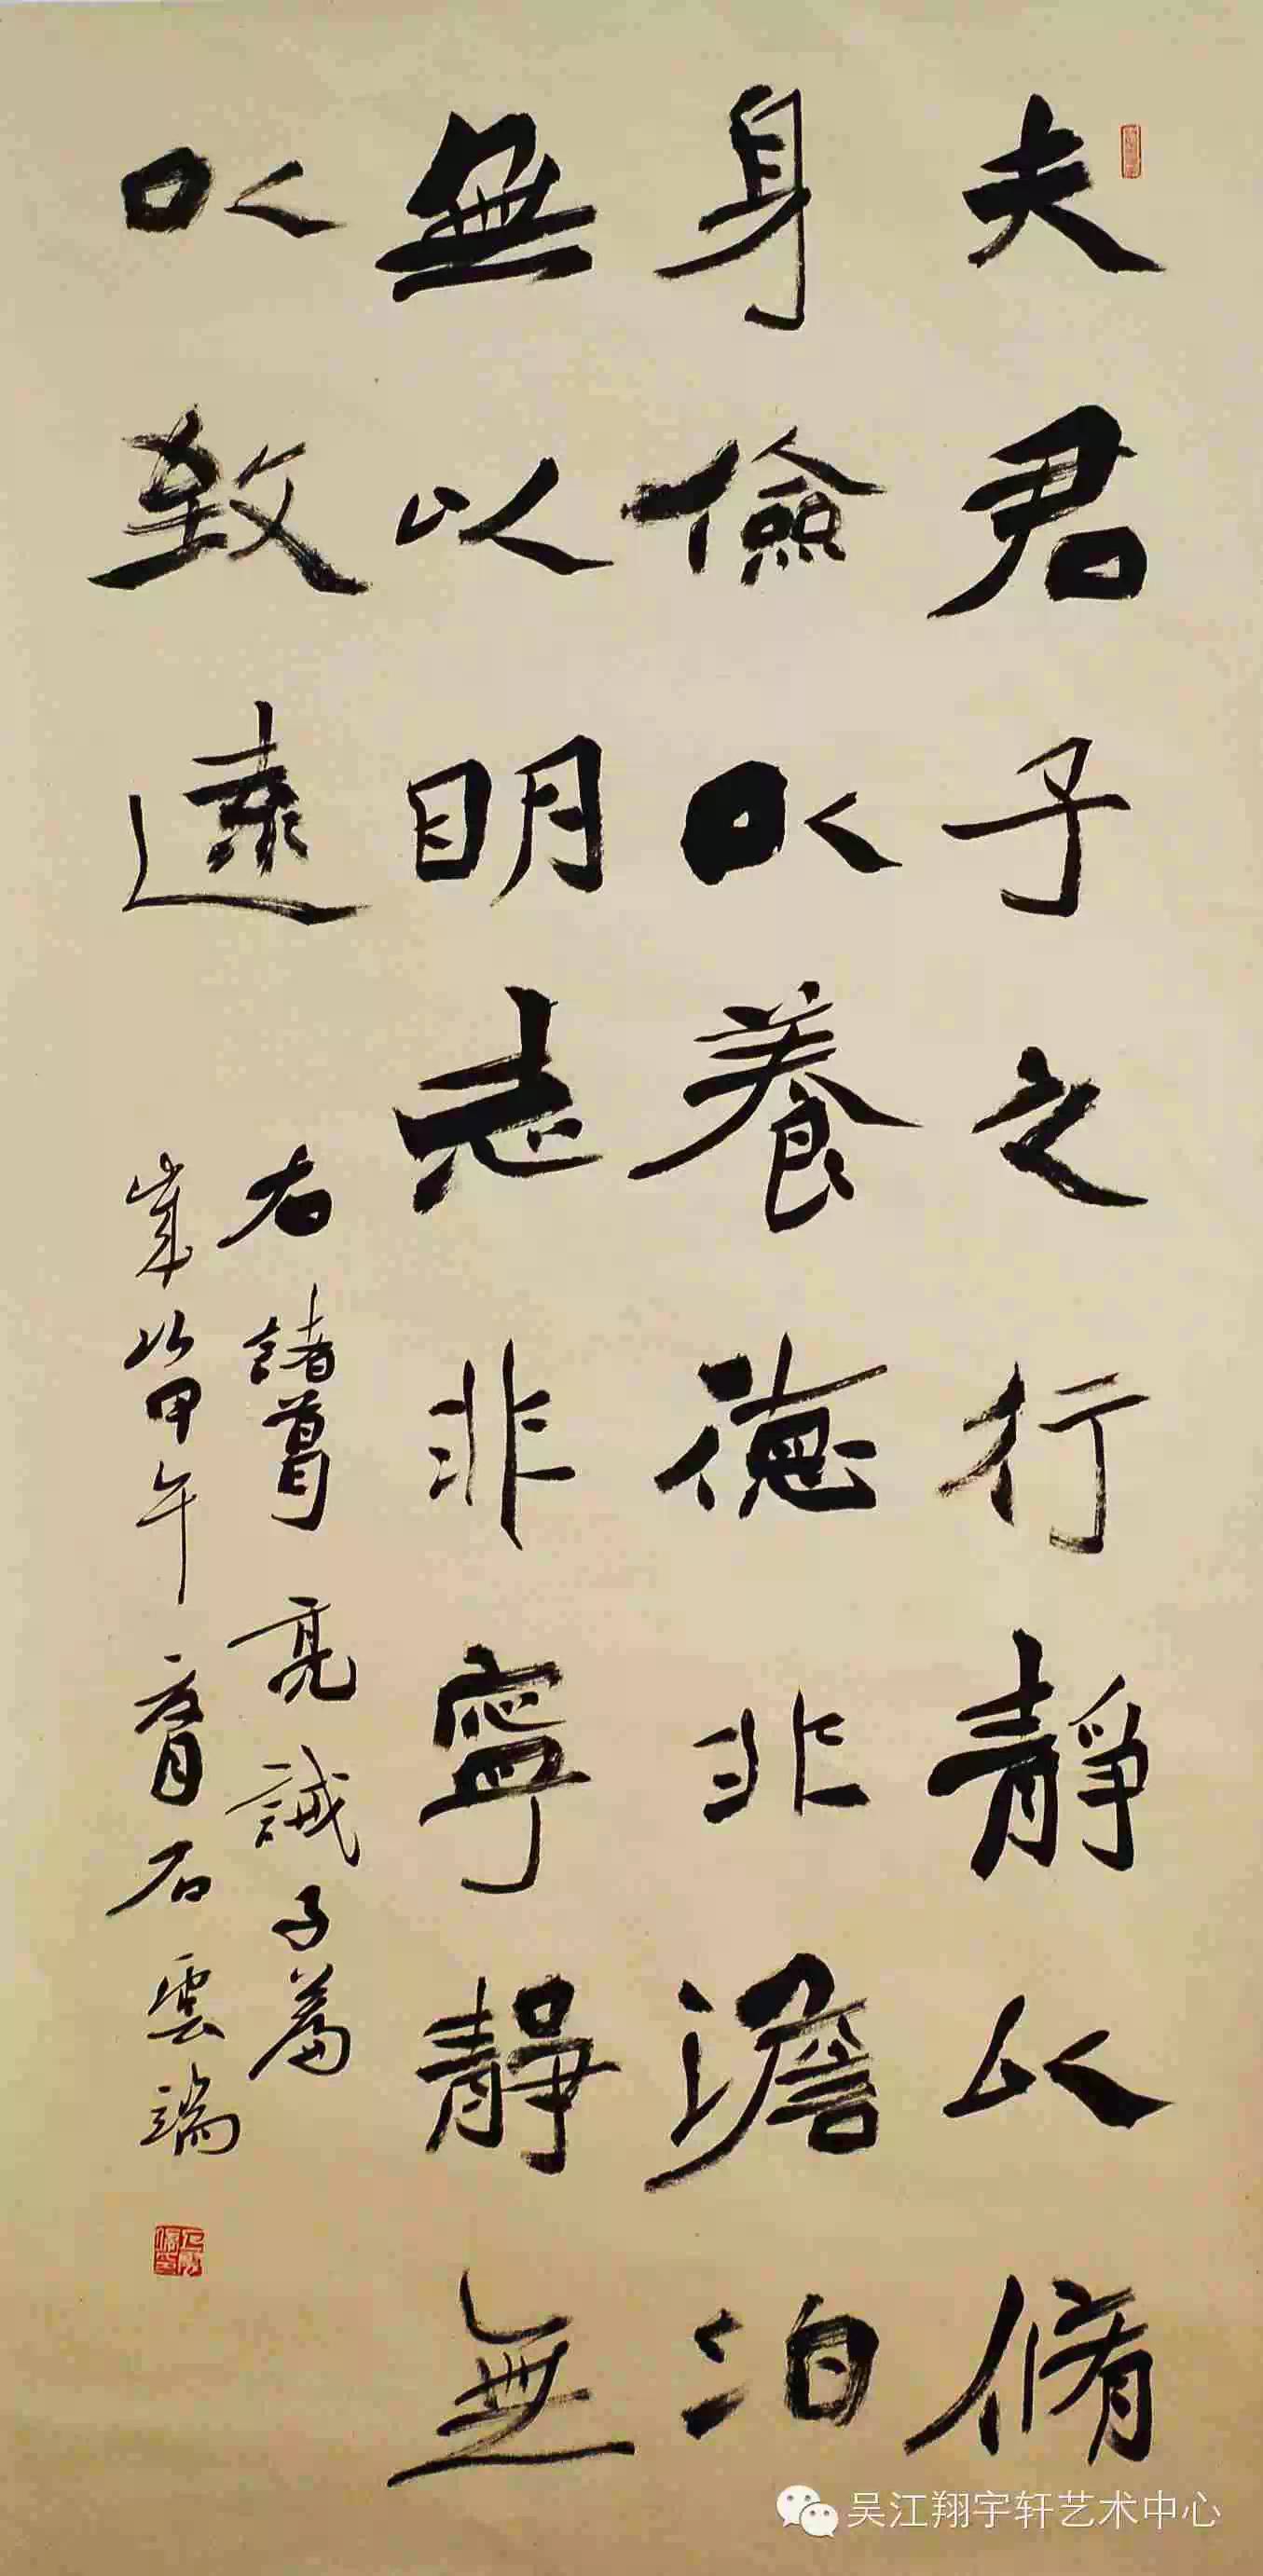 夫君子之行靜以脩
身儉以養德非澹泊
無以明志非寧靜無
以致遠
右諸葛亮誡子篇
歲次甲午 石雲端
吴江翔宇轩艺术中心